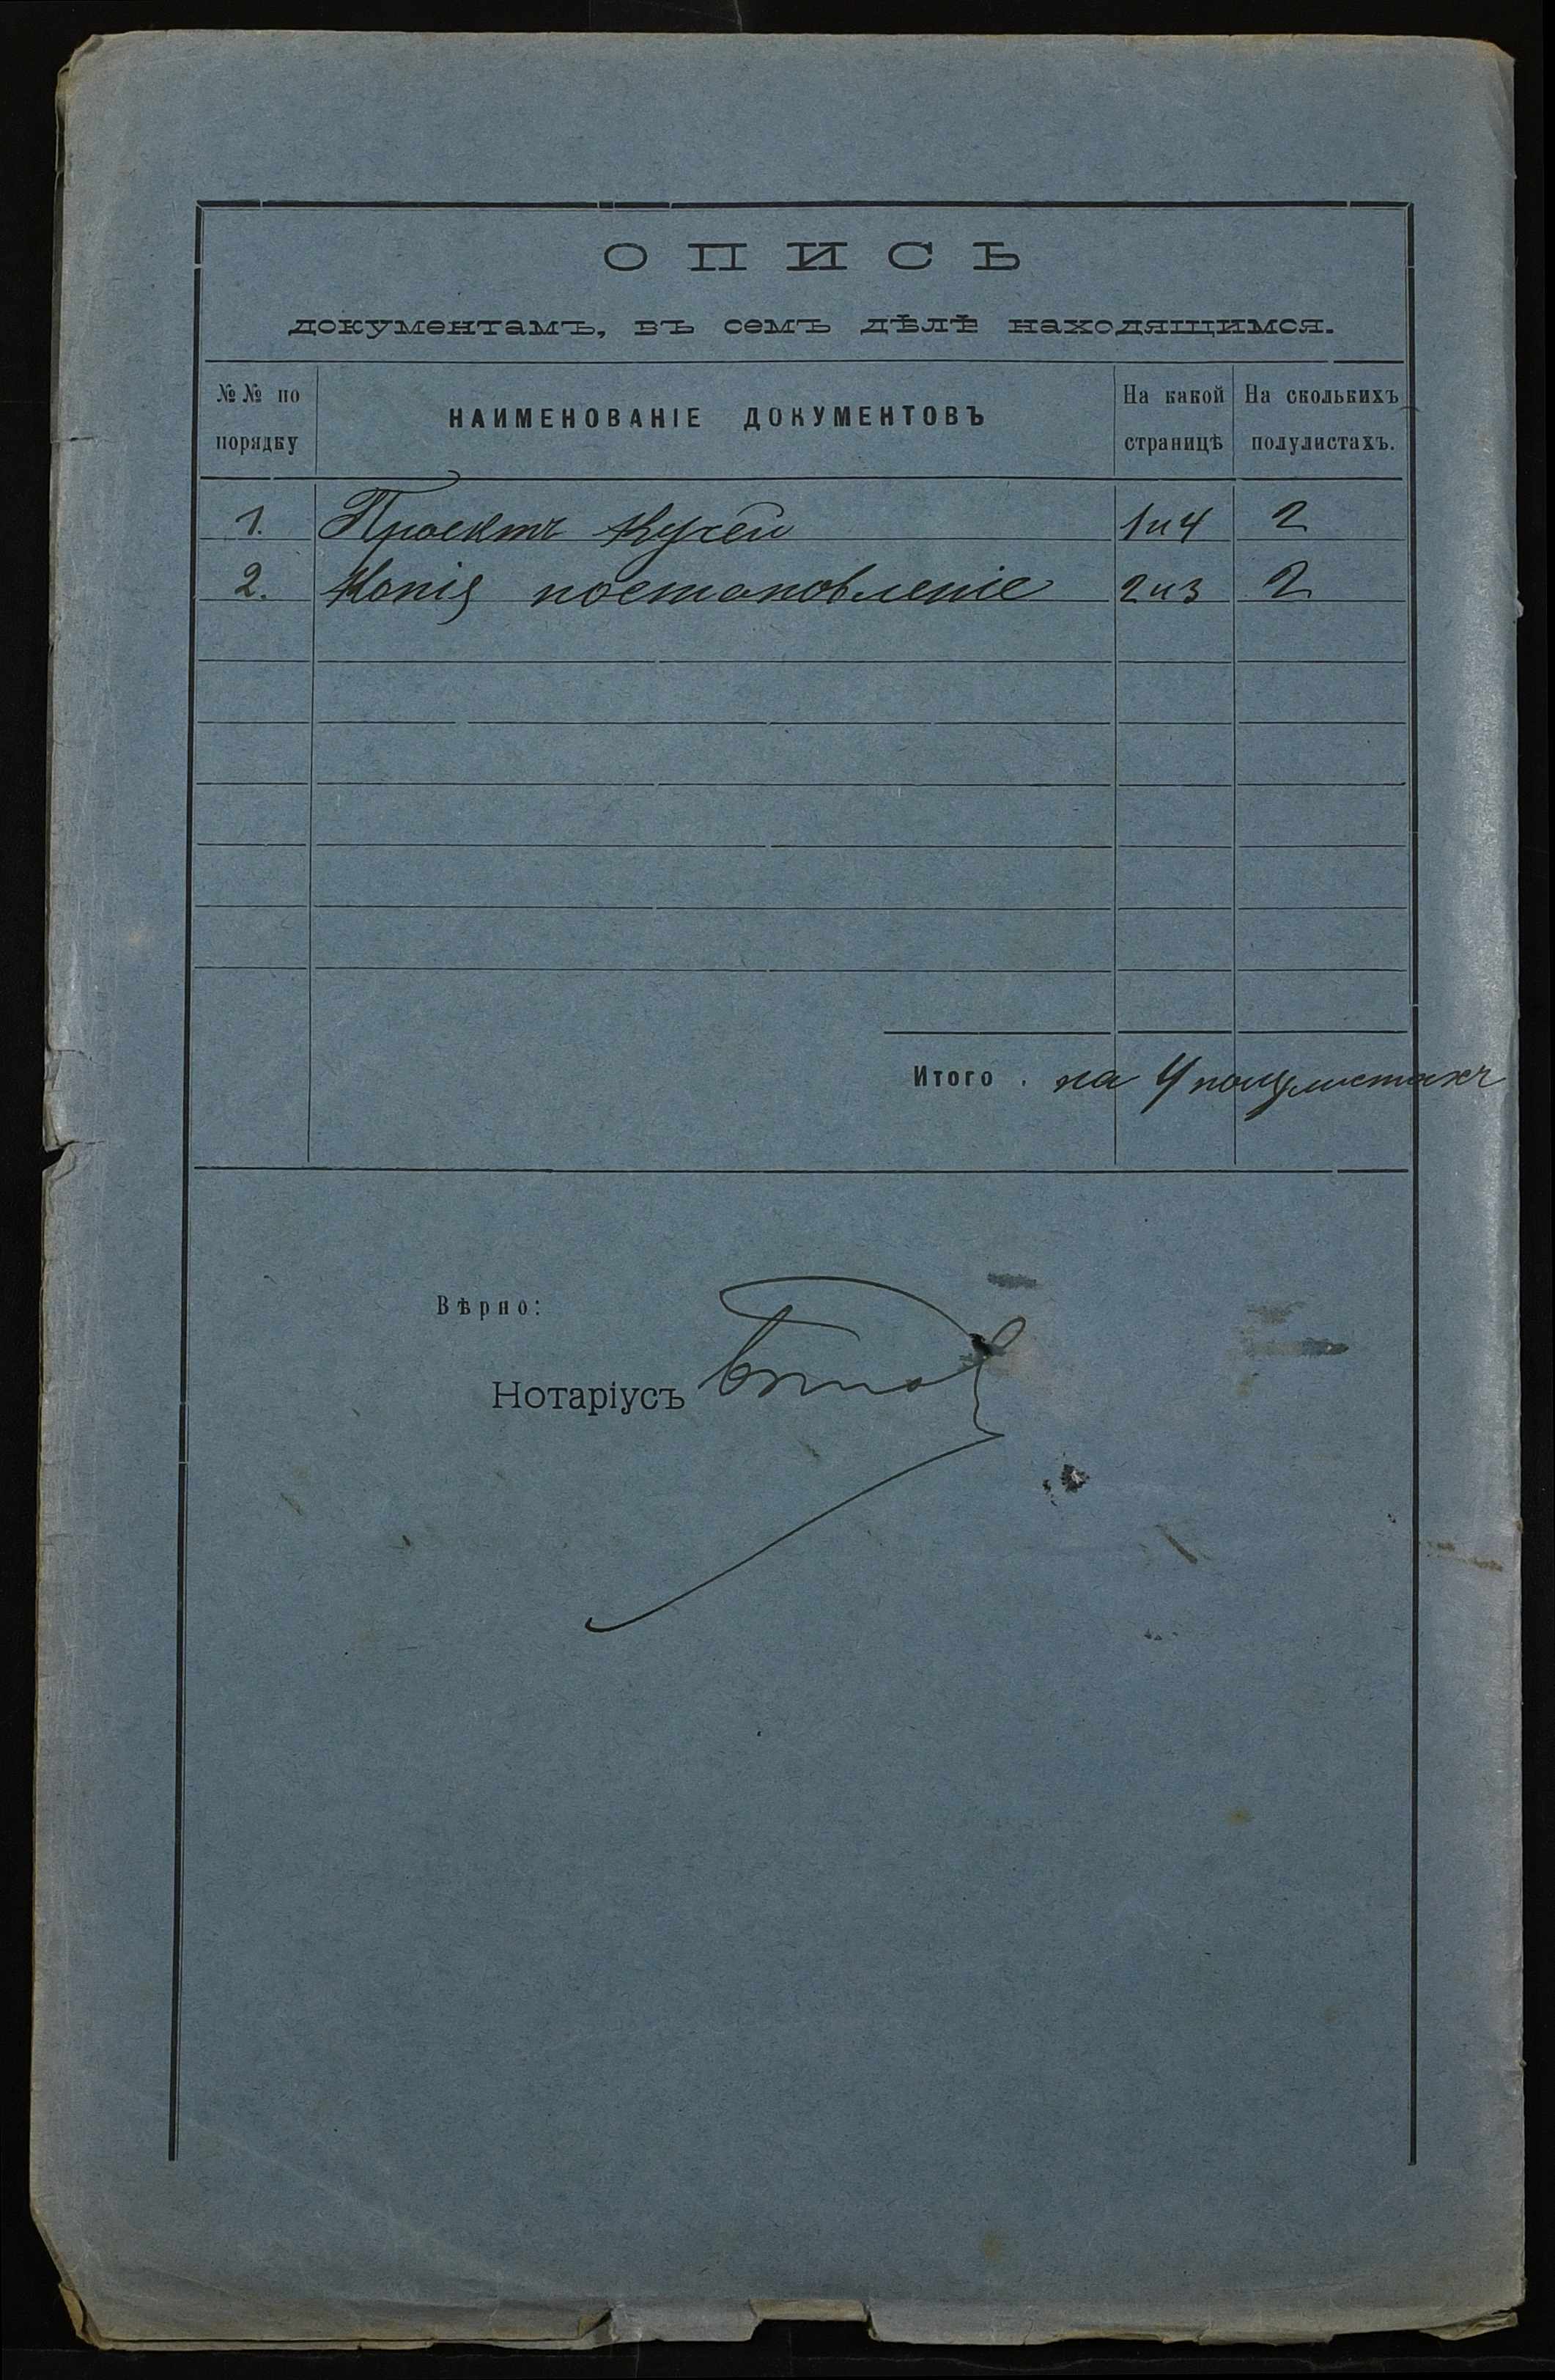 ОПИСЬ
документамъ, въ семъ дѣлѣ находящимся.
№№ по порядку
НАИМЕНОВАНІЕ ДОКУМЕНТОВЪ
На какой страницѣ
На сколькихъ полулистахъ.
1. Проектъ купчей 1 и 4 2
2. Копія постановленіе 2 и 3 2
Итого . на 4 полулистахъ
Вѣрно:
Нотаріусъ